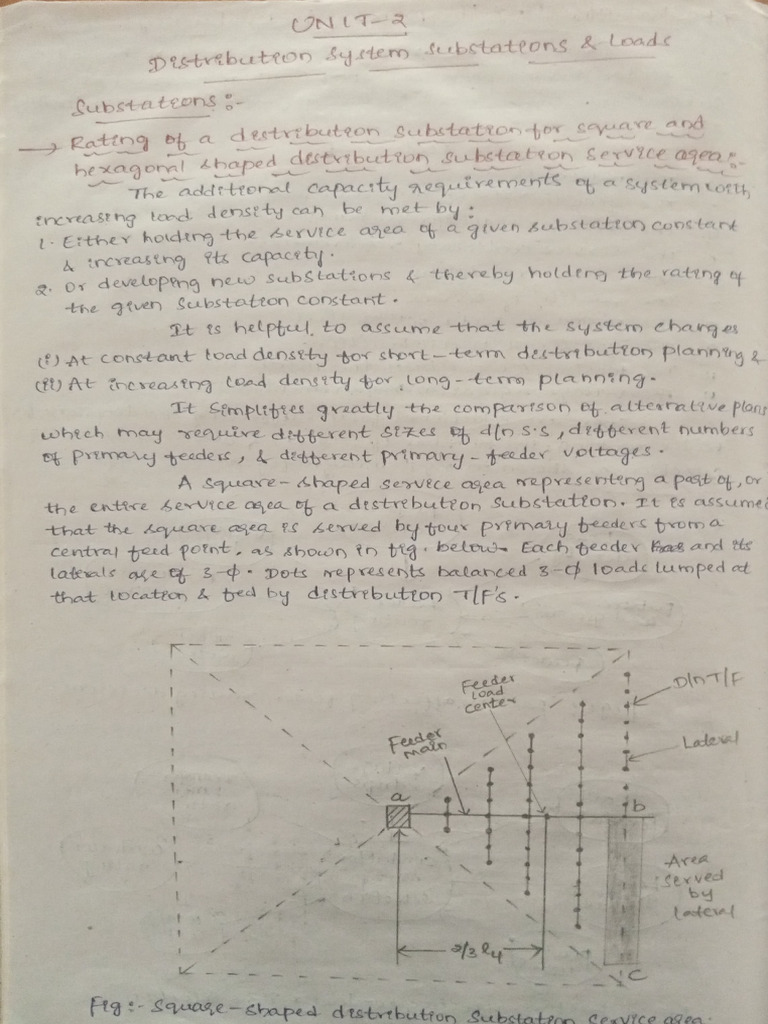 UNIT-2
Distribution System Substations & Loads
Substations:-
→ Rating of a distribution substation for square and
hexagonal shaped distribution substation service area:-
The additional capacity requirements of a system with
increasing load density can be met by:
1. Either holding the service area of a given substation constant
& increasing its capacity.
2. Or developing new substations & thereby holding the rating of
the given substation constant.
It is helpful to assume that the system changes
(i) At constant load density for short-term distribution planning &
(ii) At increasing load density for long-term planning.
It simplifies greatly the comparison of alternative plans
which may require different sizes of d/n s.s, different numbers
of primary feeders, & different primary-feeder voltages.
A square-shaped service area representing a part of, or
the entire service area of a distribution substation. It is assumed
that the square area is served by four primary feeders from a
central feed point, as shown in fig. below. Each feeder and its
laterals are of 3-ϕ. Dots represents balanced 3-ϕ loads lumped at
that location & fed by distribution T/F's.
Feeder
load
center
D/n T/F
Feeder
main
Lateral
a
b
Area
served
by
lateral
2/3 l4
c
Fig:- Square-shaped distribution Substation Service area.